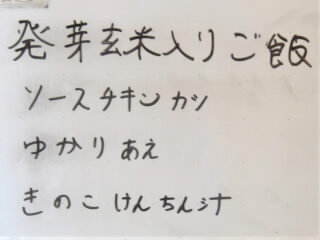 発芽玄米入りご飯
ソースチキンカツ
ゆかりあえ
きのこけんちん汁